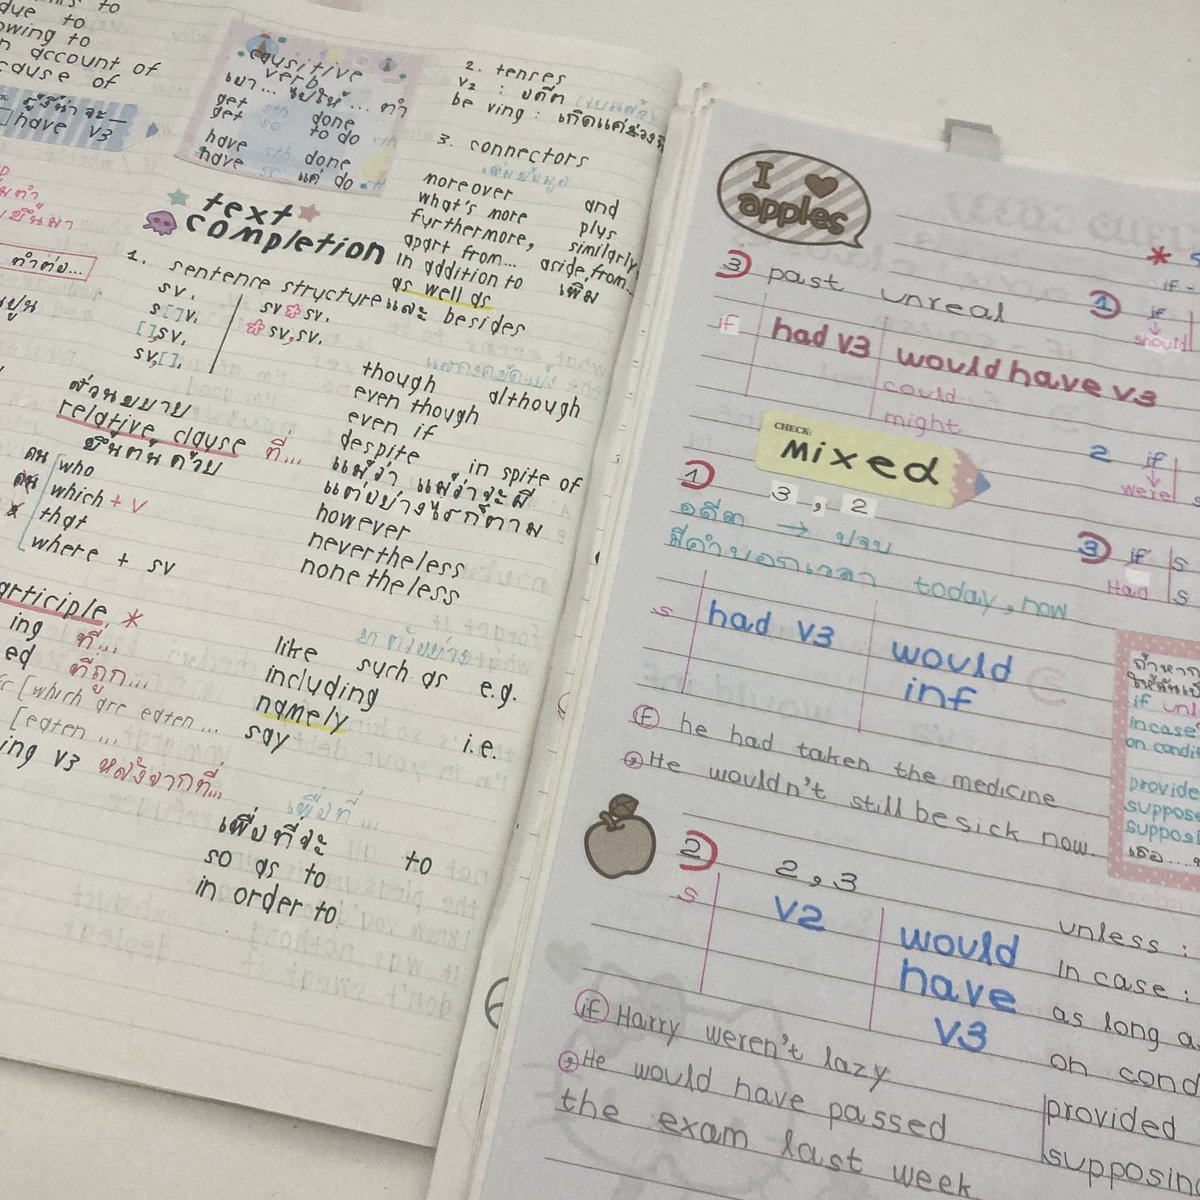 due to
owing to
account of
cause of
ผู้ชี้นำจะ
have v3
causitive
verb
เขา... ไปให้ ... ทำ
get sth done
get so to do sth
have sth done
have so แค่ do sth
2. tenses
v2 : อดีต (จบแล้ว)
be ving : เกิดแค่ช่วงนี้
3. connectors
เพิ่มข้อมูล
moreover and
what's more plus
furthermore, similarly
apart from... aside from...
in addition to เพิ่ม
as well as
besides
text
completion
1. sentence structure และ
sv.
s[]v.
[],sv.
sv,[].
sv sv.
sv, sv.
แสดงขัดแย้ง
though although
even though
even if
despite in spite of
แม้ว่า แม้ว่าจะมี
แต่อย่างไรก็ตาม
however
nevertheless
nonetheless
ส่วนขยาย
relative clause ที่...
ขึ้นต้นด้วย
คน who
which + V
that
where + sv
articiple *
ing ที่...
ed ที่ถูก...
[which are eaten ...
[eaten ...
ing v3 หลังจากที่...
ยกตัวอย่าง
like such as e.g.
including
namely i.e.
say
เพื่อที่...
เพื่อที่จะ to
so as to
in order to
I ♥
apples
3 past unreal
if had v3 would have v3
could
might
CHECK:
Mixed
1 3 , 2
อดีต → ปจบ
มีคำบอกเวลา today, now
s had v3 would
inf
if he had taken the medicine
, He wouldn't still be sick now
2 2 , 3
s v2 would
have
v3
if Harry weren't lazy
, He would have passed
the exam last week
1 if
should
2 if
were
3 if s
Had s
ถ้าหาก
if unl
incase
on condit
provide
suppose
supposi
unless :
in case :
as long a
on cond
provided
supposing